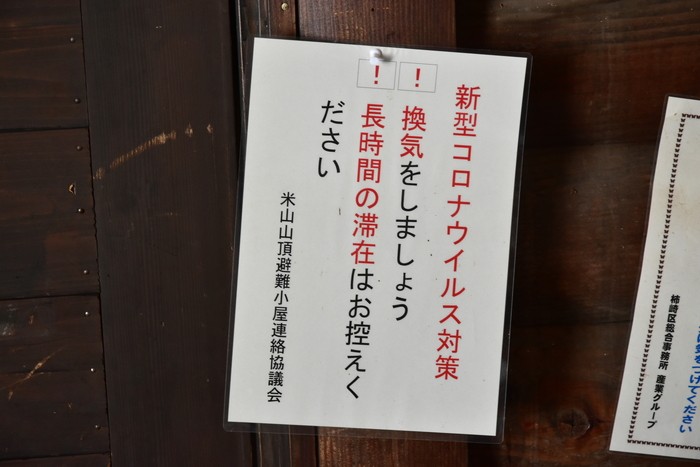 新型コロナウイルス対策
！換気をしましょう
！長時間の滞在はお控えく
ださい
米山山頂避難小屋連絡協議会
つけてください
柿崎区総合事務所 産業グループ